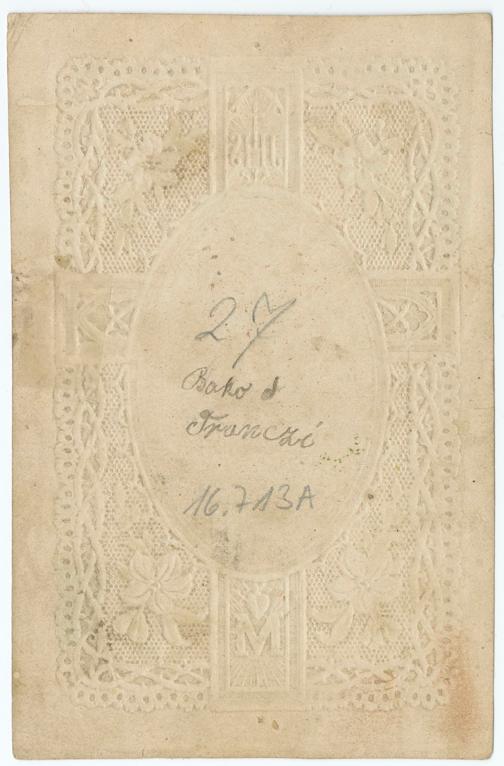 JHS
27
Bako d
Franczi
16.713A
M